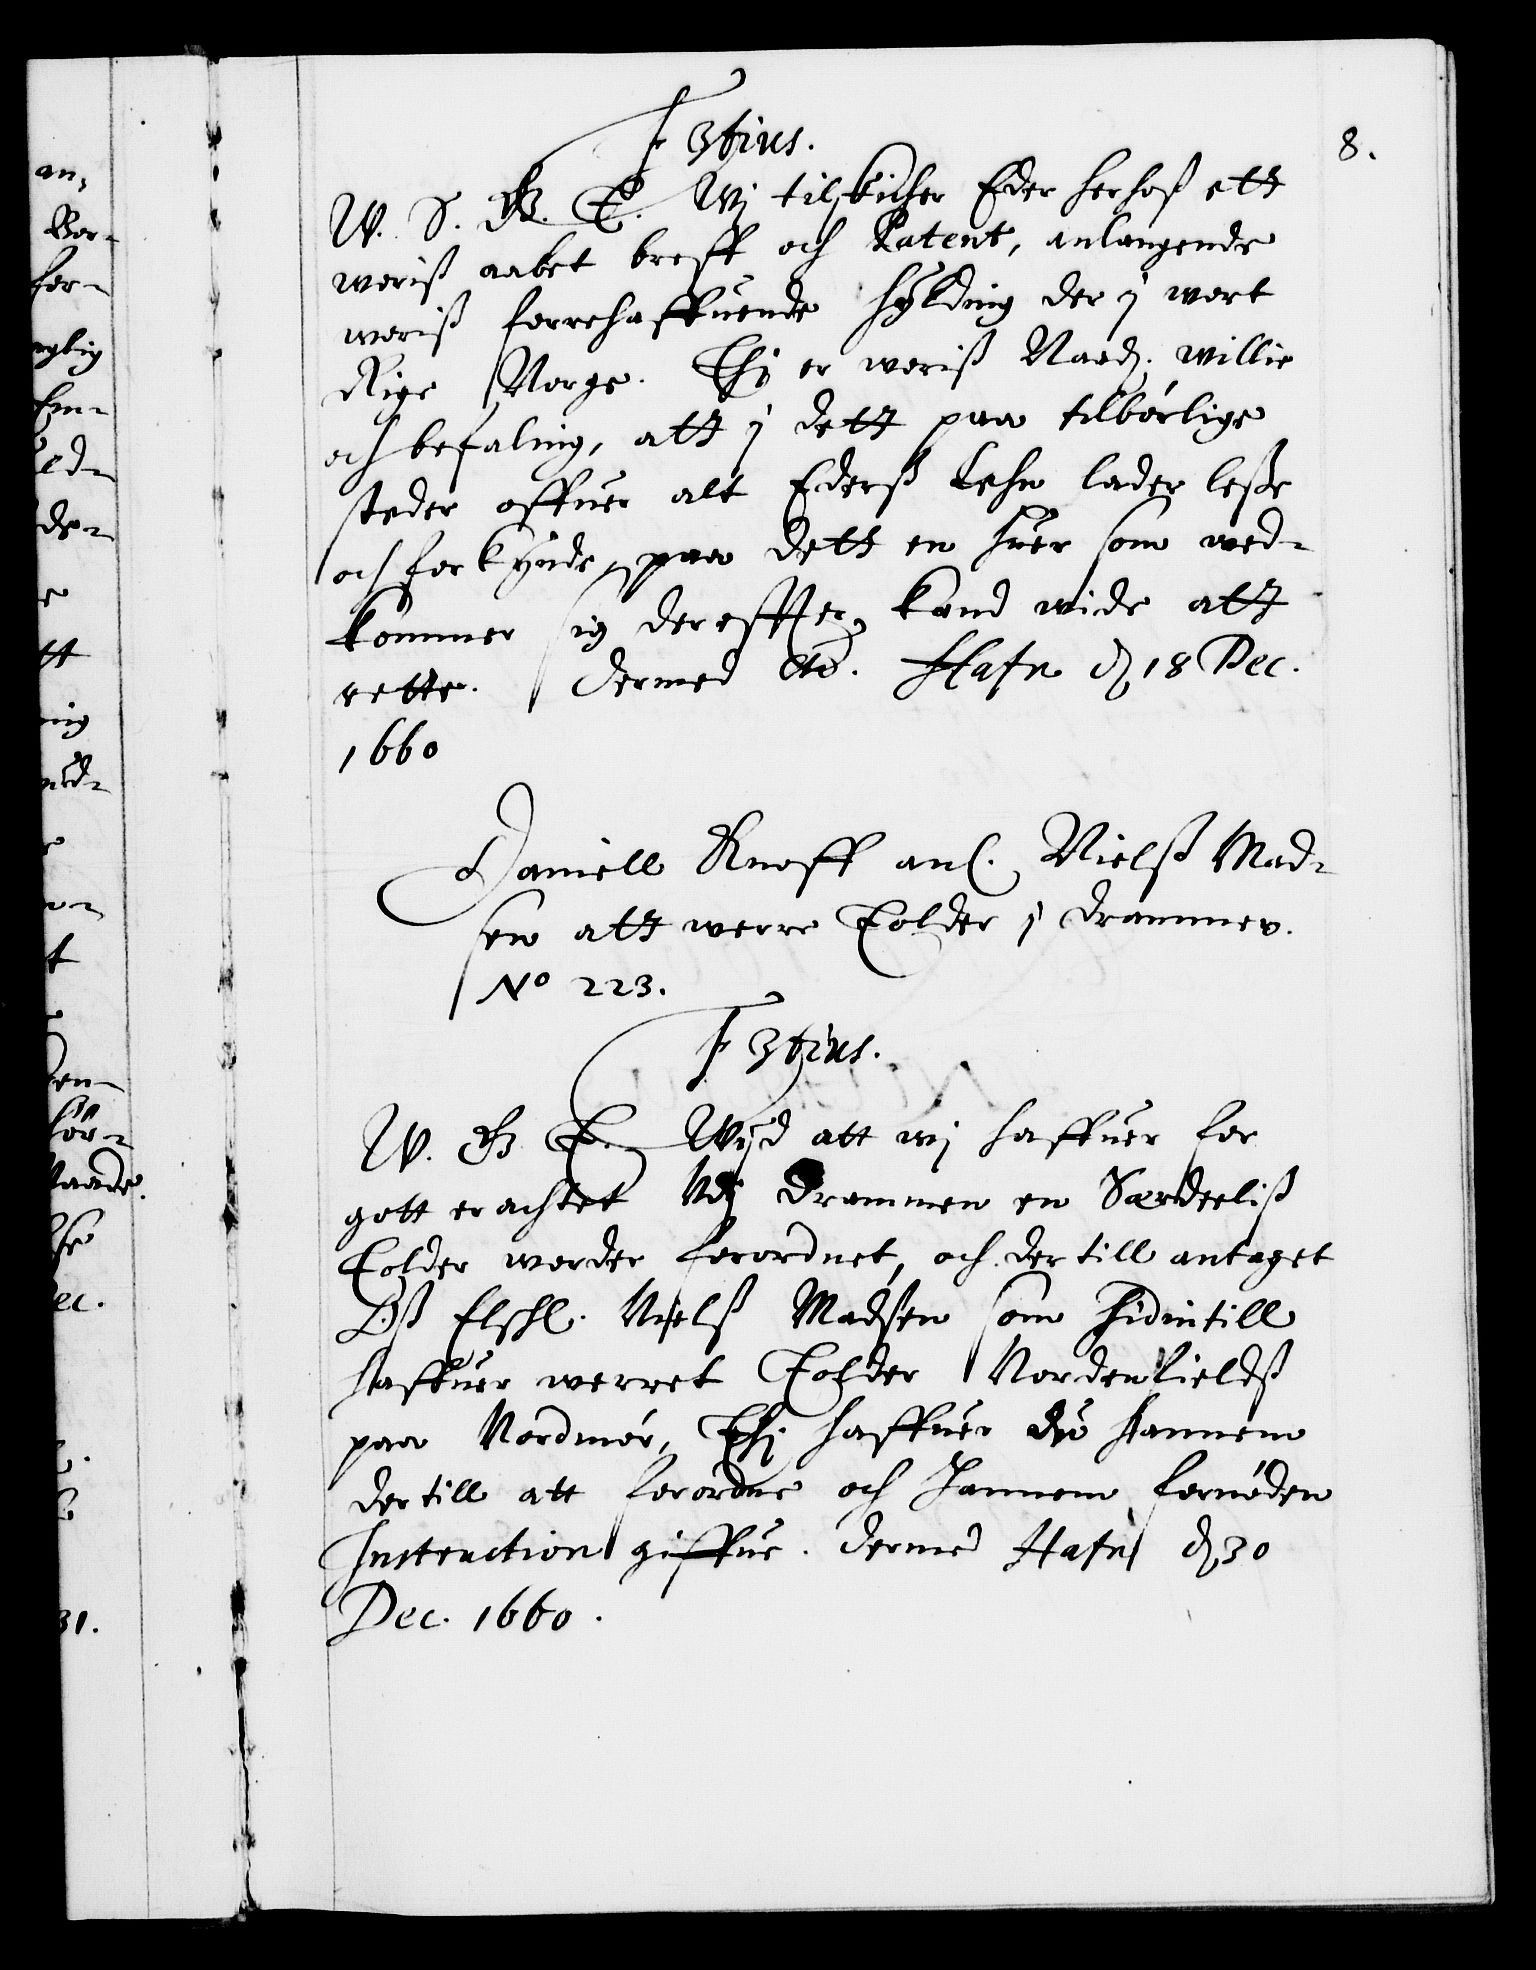 8.
F 3tius.
W. S. G. T. Wj tilskicher Eder herhoß ett
woriß aabet breff och Patent, anlangende
woriß forrehaffuende hÿlding der j wort
Rige Norge. Thj er woriß Naad. willie
och befaling, att j dett paa tilbørlige
steder offuer alt Ederß Lehn lader leße
och forkÿnde, paa dett en huer som wed-
kommer sig dereffter kand wide att
rette. Dermed etc. Hafn d. 18 Dec.
1660
Daniell Knoff anl. Nielß Mad-
sen att werre Tolder j Drammen.
No 223.
F 3tius.
W. G. T. Wijd att wj haffuer for
gott erachtet Udj Drammen en Særdeeliß
Tolder worder forordnet, och der till antaget
Oß Elschl. Nielß Madsen som hidintill
haffuer werret Tolder Nordenfieldß
paa Nordmør, Thj haffuer du hannem
der till att forordne och hannem fornøden
Instruction giffue. Dermed Hafn d. 30
Dec. 1660.